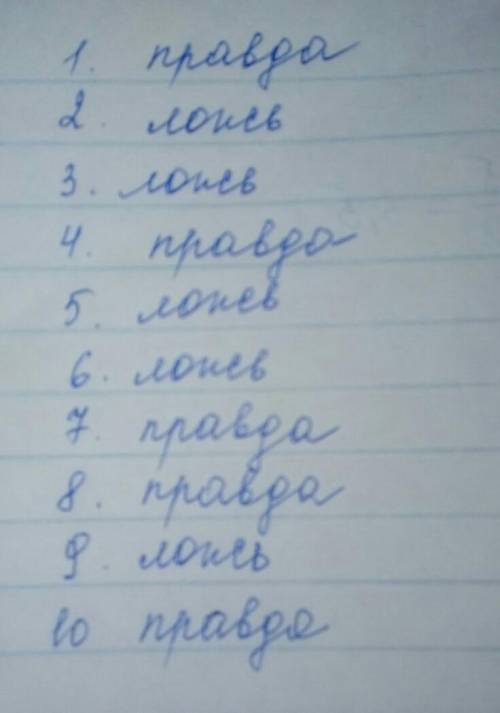 1. правда
2. ложь
3. ложь
4. правда
5. ложь
6. ложь
7. правда
8. правда
9. ложь
10 правда